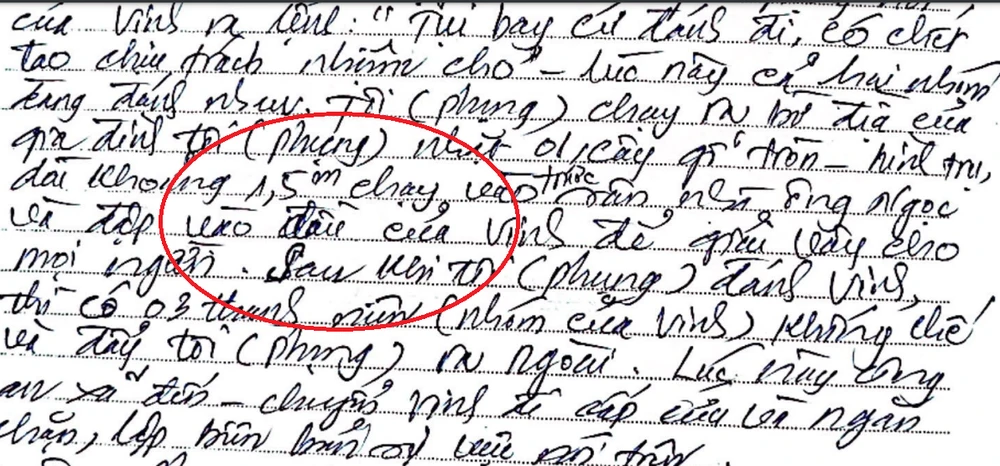 của Vinh ra lệnh: "Tụi bay cứ đánh đi, có chết
tao chịu trách nhiệm cho" - lúc này cả hai nhóm
đang đánh nhau, Tôi (phụng) chạy ra bờ địa của
gia đình tôi (phụng) nhặt 01 cây gỗ tròn - hình trụ,
dài khoảng 1,5m chạy vào trước sân nhà ông Ngọc
và đập vào đầu của Vinh để giải vây cho
mọi người. Sau khi tôi (phụng) đánh Vinh,
thì có 03 thanh niên (nhóm của Vinh) khống chế
và đẩy tôi (phụng) ra ngoài. Lúc này công
an xã đến - chuyển Vinh đi cấp cứu và ngăn
chặn, lập biên bản vụ